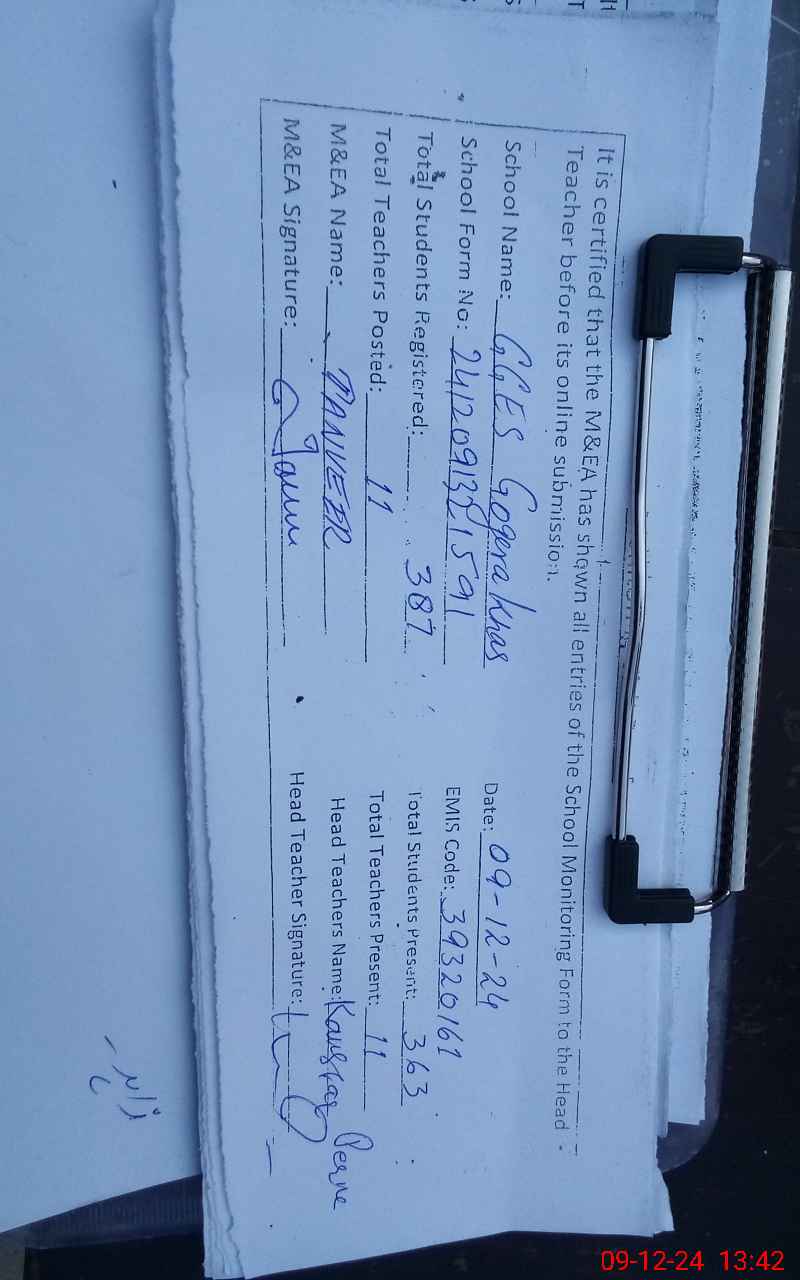 It is certified that the M&EA has shown all entries of the School Monitoring Form to the Head
Teacher before its online submission.
School Name: GGES Gogera Khas Date: 09-12-24
School Form No: 2412091321591 EMIS Code: 39320161
Total Students Registered: 387 Total Students Present: 363
Total Teachers Posted: 11 Total Teachers Present: 11
M&EA Name: TANVEER Head Teachers Name: Kausar
M&EA Signature: Head Teacher Signature:
09-12-24 13:42